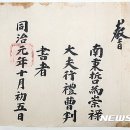 南東哲爲崇祿
大夫行禮曹判
書者
同治元年十月初五日